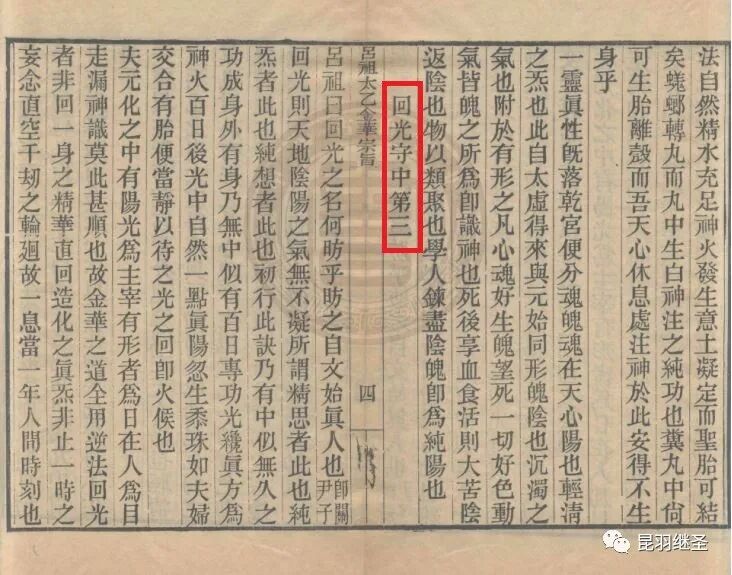 法自然精水充足神火發生意土凝定而聖胎可結
矣蜣螂轉丸而丸中生白神注之純功也糞丸中尙
可生胎離殼而吾天心休息處注神於此安得不生
身乎
一靈眞性旣落乾宮便分魂魄魂在天心陽也輕淸
之炁也此自太虛得來與元始同形魄陰也沉濁之
氣也附於有形之凡心魂好生魄望死一切好色動
氣皆魄之所爲卽識神也死後享血食活則大苦陰
返陰也物以類聚也學人鍊盡陰魄卽爲純陽也
回光守中第三
呂祖太乙金華宗旨
四
呂祖曰回光之名何昉乎昉之自文始眞人也卽關尹子
回光則天地陰陽之氣無不凝所謂精思者此也純
炁者此也純想者此也初行此訣乃有中似無久之
功成身外有身乃無中似有百日專功光纔眞方爲
神火百日後光中自然一點眞陽忽生黍珠如夫婦
交合有胎便當靜以待之光之回卽火候也
夫元化之中有陽光爲主宰有形者爲日在人爲目
走漏神識莫此甚順也故金華之道全用逆法回光
者非回一身之精華直回造化之眞炁非止一時之
妄念直空千刼之輪廻故一息當一年人間時刻也
昆羽继圣